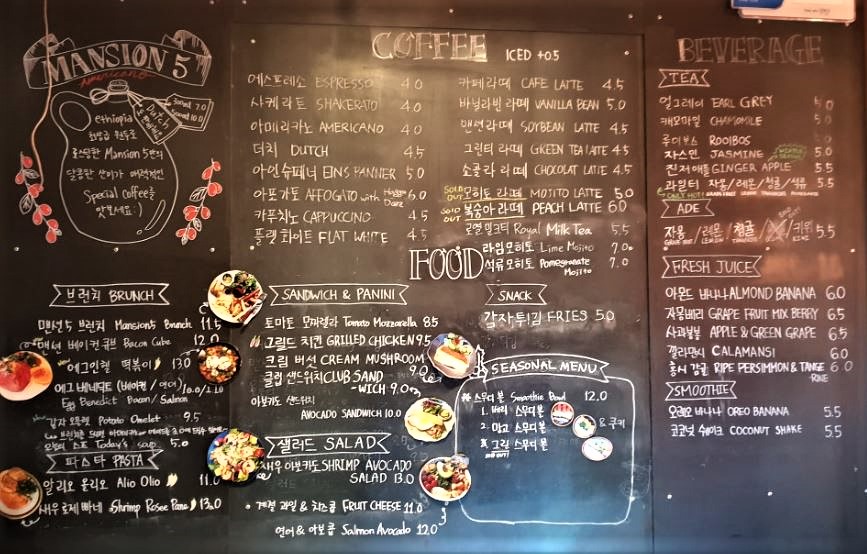 MANSION 5
Americano
Dutch
ethiopia
최상급 원두로
로스팅한 Mansion 5만의
달콤한 산미가 매력적인
Special coffee를
맛보세요 :)
COFFEE ICED +0.5
에스프레소 ESPRESSO 4.0
샤케라토 SHAKERATO 4.0
아메리카노 AMERICANO 4.0
더치 DUTCH 4.5
아인슈패너 EINSPANNER 5.0
아포가토 AFFOGATO with 6.0
카푸치노 CAPPUCCINO 4.5
플랫 화이트 FLAT WHITE 4.5
카페라떼 CAFE LATTE 4.5
바닐라빈 라떼 VANILLA BEAN 5.0
맨션 라떼 SOYBEAN LATTE 4.5
그린티 라떼 GREEN TEA LATTE 4.5
쇼콜라 라떼 CHOCOLAT LATTE 4.5
SOLD OUT 모히토 라떼 MOJITO LATTE 5.0
SOLD OUT 복숭아 라떼 PEACH LATTE 6.0
로얄 밀크티 Royal Milk Tea 5.5
라임모히토 Lime Mojito 7.0
석류모히토 Pomegranate Mojito 7.0
FOOD
브런치 BRUNCH
맨션5 브런치 Mansion5 Brunch 11.5
맨션 베이컨 큐브 Bacon Cube 12.0
에그인헬 떡볶이 13.0
에그 베네딕트 (베이컨 / 연어) 10.0/12.0
Egg Benedict Bacon / Salmon
감자 오믈렛 Potato Omelet 9.5
오늘의 스프 Today's soup 5.0
파스타 PASTA
알리오 올리오 Alio Olio 11.0
새우 로제 빠네 Shrimp Rosee Pane 13.0
SANDWICH & PANINI
토마토 모짜렐라 Tomato Mozzarella 8.5
그릴드 치킨 GRILLED CHICKEN 9.5
크림 버섯 CREAM MUSHROOM 9.0
클럽 샌드위치 CLUB SAND
-WICH 9.0
아보카도 샌드위치
AVOCADO SANDWICH 10.0
샐러드 SALAD
새우 아보카도 SHRIMP AVOCADO
SALAD 13.0
계절 과일 & 치즈 FRUIT CHEESE 11.0
연어 & 아보콥 Salmon Avocado 12.0
SNACK
감자튀김 FRIES 5.0
SEASONAL MENU
스무디 볼 Smoothie Bowl 12.0
1. 베리 스무디 볼
2. 망고 스무디 볼 & 쿠키
그린 스무디 볼
SOLD OUT
BEVERAGE
TEA
얼그레이 EARL GREY 5.0
캐모마일 CHAMOMILE 5.0
루이보스 ROOIBOS 5.0
자스민 JASMINE 5.0
진저애플 GINGER APPLE 5.5
과일티 자몽/레몬/청귤/석류 5.5
ONLY HOT!
ADE
자몽/레몬/청귤/키위 5.5
FRESH JUICE
아몬드 바나나 ALMOND BANANA 6.0
자몽베리 GRAPE FRUIT MIX BERRY 6.5
사과청포도 APPLE & GREEN GRAPE 6.5
깔라만시 CALAMANSI 6.0
홍시 감귤 RIPE PERSIMMON & TANGE 6.0
RINE
SMOOTHIE
오레오 바나나 OREO BANANA 5.5
코코넛 쉐이크 COCONUT SHAKE 5.5